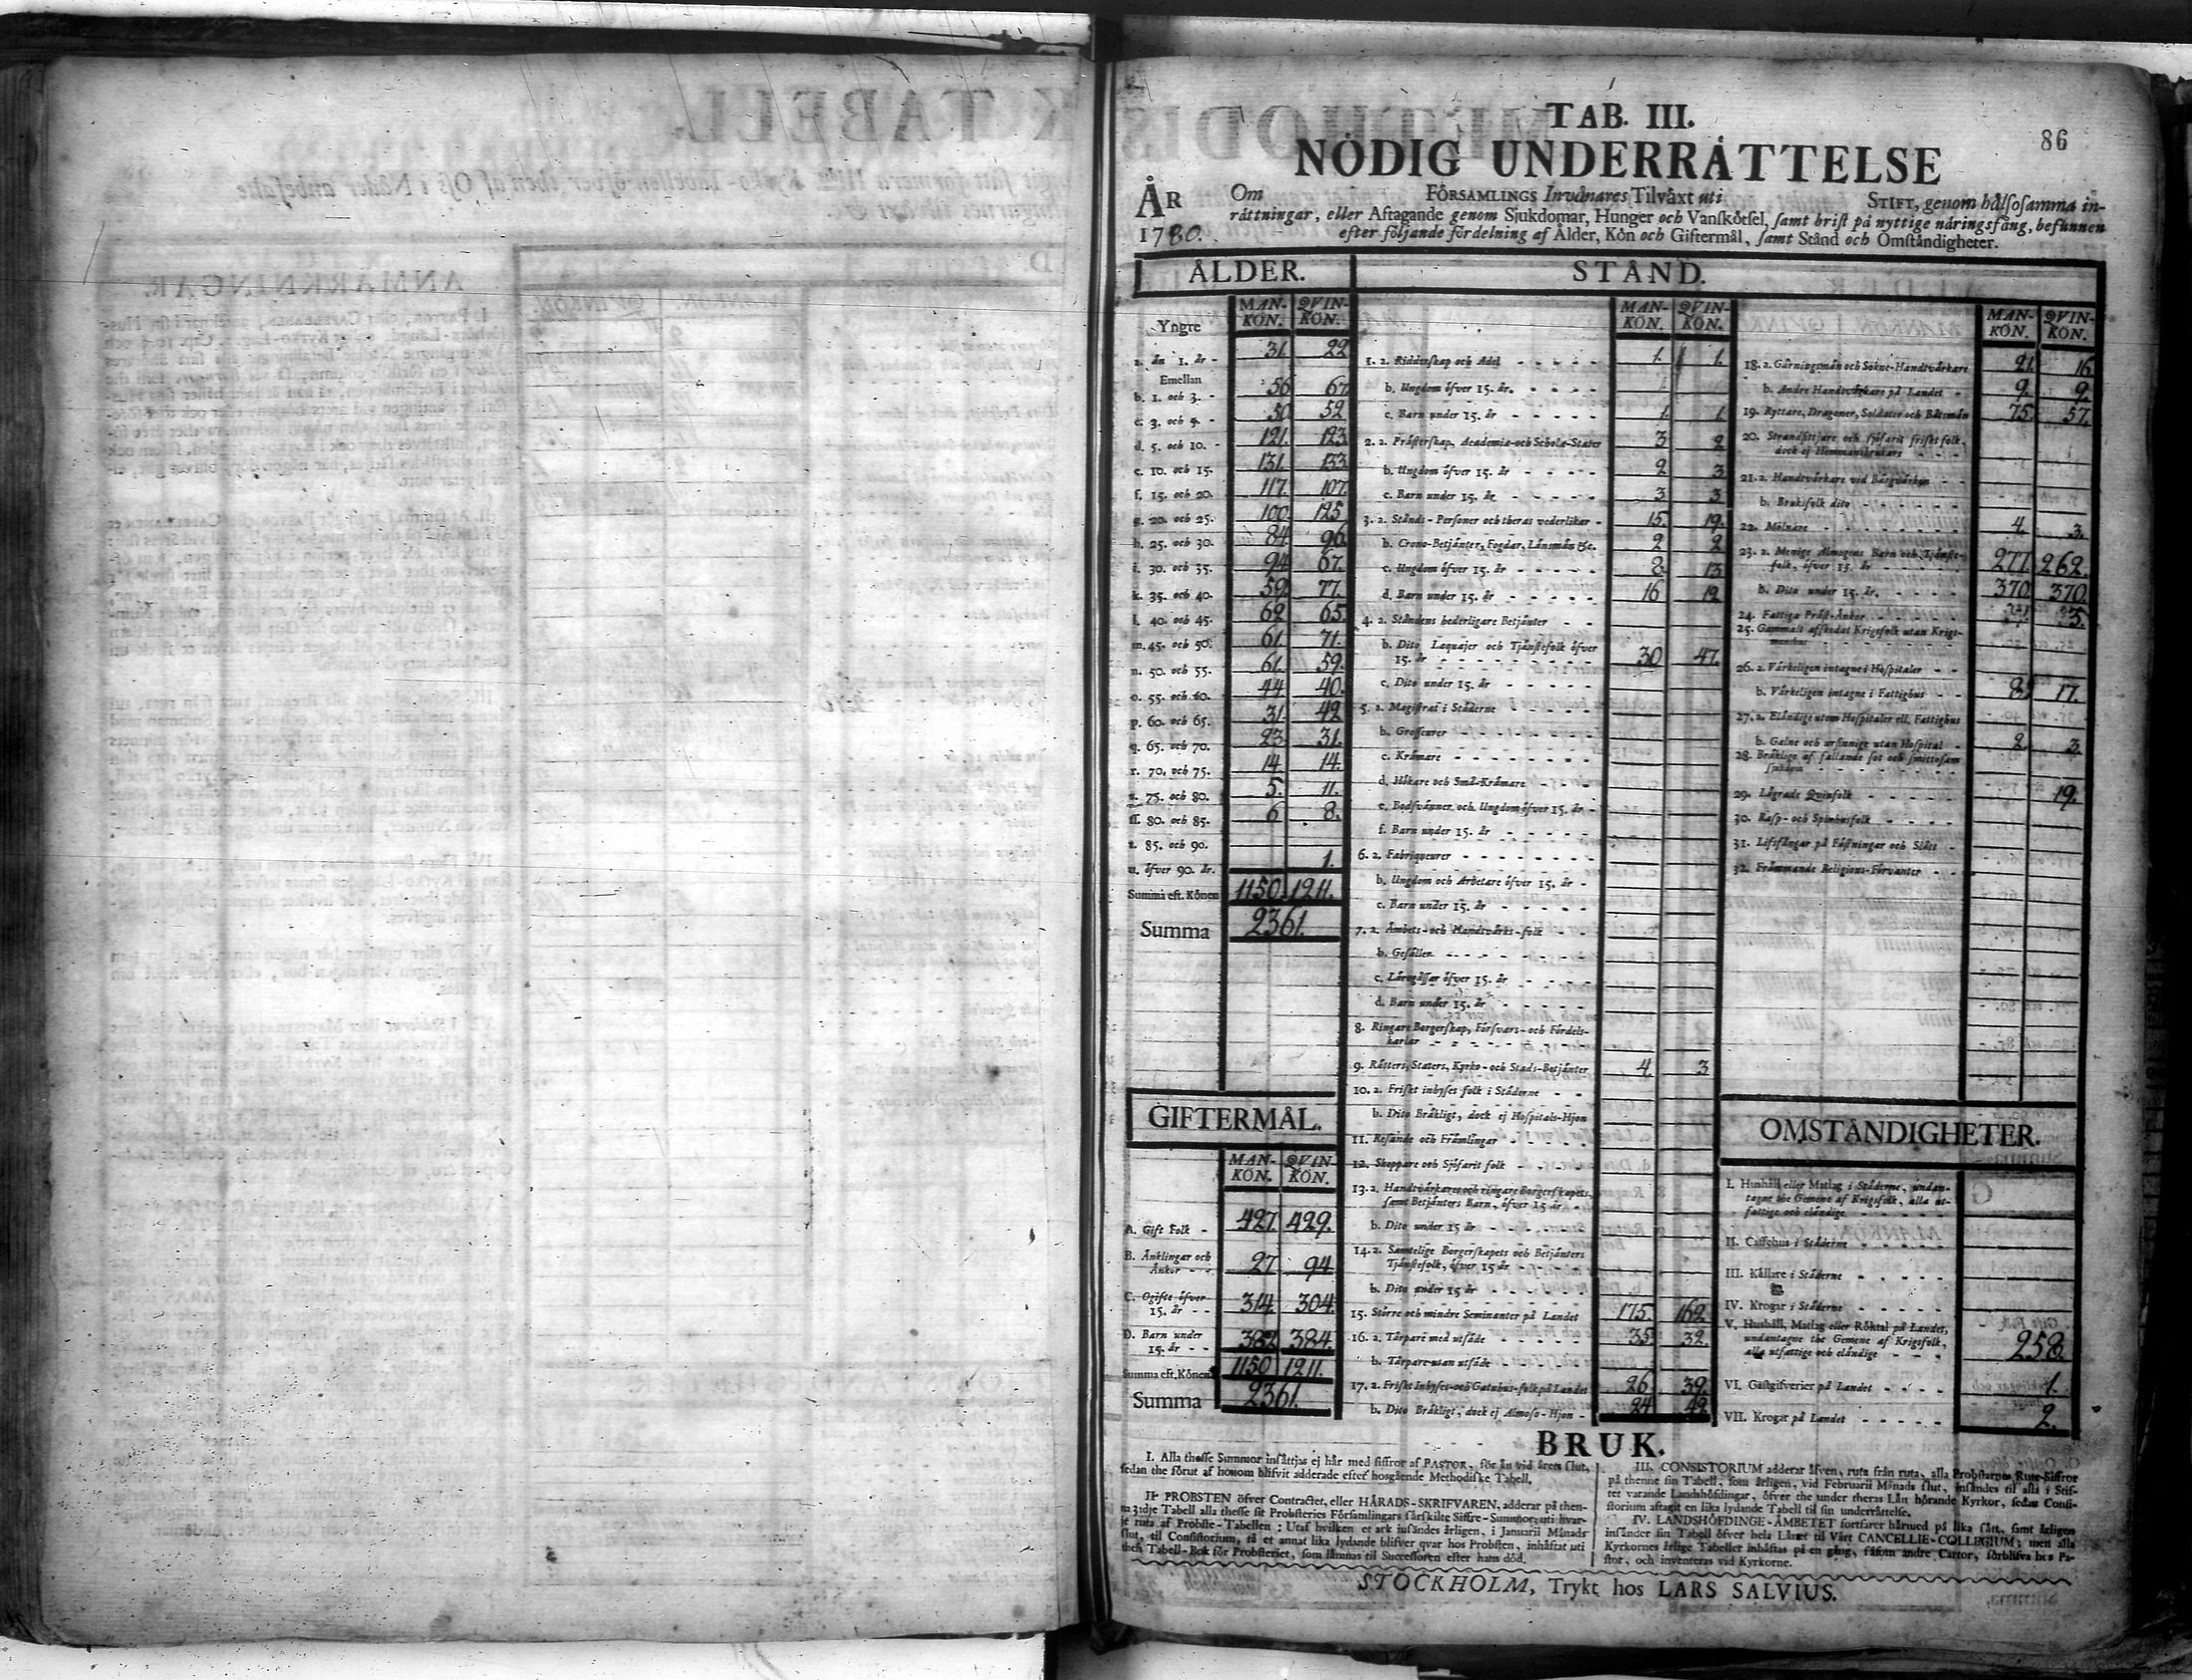 TAB. III.
86
NÖDIG UNDERRÅTTELSE
ÅR
1780.
Om FÖRSAMLINGS Invånares Tilväxt uti STIFT, genom hålsosamma in-
råttningar, eller Aftagande genom Sjukdomar, Hunger och Vanskötsel, samt brist på nyttige näringsfång, befunnen
efter följande fördelning af Ålder, Kön och Giftermål, samt Stånd och Omständigheter.
ÅLDER.
MAN-KÖN. QVIN-KÖN.
Yngre
a. än 1. år - 31. 22
Emellan
b. 1. och 3. - 56 67.
c. 3. och 5. - 50 52
d. 5. och 10. - 121. 123.
e. 10. och 15. 131. 133.
f. 15. och 20. 117. 107.
g. 20. och 25. 100. 125
h. 25. och 30. 84 96.
i. 30. och 35. 94 67.
k. 35. och 40. 59. 77.
l. 40. och 45. 62 65.
m. 45. och 50. 61. 71.
n. 50. och 55. 61. 59.
o. 55. och 60. 44 40.
p. 60. och 65. 31. 42
q. 65. och 70. 23 31.
r. 70. och 75. 14 14.
s. 75. och 80. 5. 11.
ss. 80. och 85. 6 8.
t. 85. och 90.
u. öfver 90. år. 1.
Summa eft. Könen 1150. 1211.
Summa 2361.
GIFTERMÅL.
MAN-KÖN. QVIN-KÖN.
A. Gift Folk - 427. 429.
B. Änklingar och
Änkor - - 27 94
C. Ogifte öfver
15. år - - 314. 304.
D. Barn under
15. år - - 382. 384.
Summa eft. Könen 1150 1211.
Summa 2361.
STÅND.
MAN-KÖN. QVIN-KÖN.
1. a. Ridderskap och Adel 1. 1.
b. Ungdom öfver 15. år.
c. Barn under 15. år 1. 1.
2. a. Prästerskap, Academiæ-och Scholæ-Stater 3 2
b. Ungdom öfver 15. år 2 3
c. Barn under 15. år 3 3
3. a. Stånds-Personer och theras vederlikar 15. 19.
b. Crono-Betjänter, Fogdar, Länsmän &c. 2 2
c. Ungdom öfver 15. år 8 13
d. Barn under 15. år 16 12
4. a. Ståndens hederligare Betjänter
b. Dito Laquajer och Tjänstefolk öfver
15. år 30 47.
c. Dito under 15. år
5. a. Magistrat i Städerne
b. Grosseurer
c. Krämare
d. Hökare och Små-Krämare
e. Bodsvänner och Ungdom öfver 15. år
f. Barn under 15. år
6. a. Fabriqueurer
b. Ungdom och Arbetare öfver 15. år
c. Barn under 15. år
7. a. Ämbets-och Handtvärks-folk
b. Gesäller
c. Lärogåssar öfver 15. år
d. Barn under 15. år
8. Ringare Borgerskap, Försvars-och Fördels-
karlar
9. Rätters, Staters, Kyrko-och Stads-Betjänter 4 3
10. a. Friskt inhyses folk i Städerne
b. Dito Bräkligt, dock ej Hospitals-Hjon
11. Resande och Främlingar
12. Skeppare och Sjöfarit folk
13. a. Handtvärkares och ringare Borgerskapets,
samt Betjänters Barn, öfver 15 år
b. Dito under 15 år
14. a. Samtelige Borgerskapets och Betjänters
Tjänstefolk, öfver 15 år
b. Dito under 15 år
15. Större och mindre Seminanter på Landet 175. 162.
16. a. Tårpare med utsäde 35 32.
b. Tårpare utan utsäde
17. a. Friskt Inhyses-och Gatuhus-folk på Landet 26 39.
b. Dito Bräkligt, dock ej Almoso-Hjon 24 42.
MAN-KÖN. QVIN-KÖN.
18. a. Gärningsmän och Sokne-Handtvärkare 21. 16
b. Andre Handtvärkare på Landet 9. 9.
19. Ryttare, Dragoner, Soldater och Båtsmän 75. 57.
20. Strandsittjare och sjöfarit friskt folk,
dock ej Hemmansbrukare
21. a. Handtvärkare vid Bärgvärken
b. Bruksfolk dito
22. Mölnare 4. 3.
23. a. Menige Almogens Barn och Tjänste-
folk, öfver 15. år 277. 262.
b. Dito under 15. år. 370. 370.
24. Fattiga Präst-Änkor
25. Gammalt affskedat Krigsfolk utan Krigs-
26. a. Värkeligen intagne i Hospitaler
b. Värkeligen intagne i Fattighus 8. 17.
27. a. Eländige utom Hospitaler ell. Fattighus
b. Galne och ursinnige utan Hospital 2. 3.
28. Bräklige af fallande sot och smittosam
sjukdom
29. Lägrade Qvinfolk 19.
30. Rasp-och Spinhusfolk
31. Lifsfångar på Fästningar och Slått
32. Främmande Religions-Förvanter
OMSTÄNDIGHETER.
I. Hushåll eller Matlag i Städerne, undan-
tagne the Gemene af Krigsfolk, alla ut-
fattige och eländige
II. Caffehus i Städerne
III. Källare i Städerne
IV. Krogar i Städerne
V. Hushåll, Matlag eller Röktal på Landet,
undantagne the Gemene af Krigsfolk,
alla utfattige och eländige 258.
VI. Gästgifverier på Landet 1.
VII. Krogar på Landet 2.
BRUK.
I. Alla thesse Summor insättjas ej här med siffror af PASTOR, för än vid årens slut,
sedan the förut af honom blifvit adderade efter hosgående Methodiske Tabell.
II. PROBSTEN öfver Contractet, eller HÄRADS-SKRIFVAREN, adderar på then-
na 3:dje Tabell alla thesse sit Probsteries Församlingars särskilte Siffre-Summor, uti hvar-
je ruta af Probste-Tabellen: Utaf hvilken et ark insändes årligen, i Januarii Månads
slut, til Consistorium, få et annat lika lydande blifver qvar hos Probsten, inhäftat uti
thess Tabell-Bok för Probsteriet, som lämnas til Successoren efter hans död.
III. CONSISTORIUM adderar äfven, ruta från ruta, alla Probstarnes Rute-Siffror
på thenne sin Tabell, som årligen, vid Februarii Månads slut, insändes til alla i Stif-
tet varande Landshöfdingar, öfver the under theras Län hörande Kyrkor, sedan Consi-
storium aftagit en lika lydande Tabell til sin underrättelse.
IV. LANDSHÖFDINGE-ÄMBETET fortfarer härmed på lika sätt, samt årligen
insänder sin Tabell öfver hela Länet til Vårt CANCELLIE-COLLEGIUM; men alla
Kyrkornes årlige Tabeller inhäftas på en gång, såsom andre Cartor, förblifva hos Pa-
stor, och inventeras vid Kyrkorne.
STOCKHOLM, Trykt hos LARS SALVIUS.